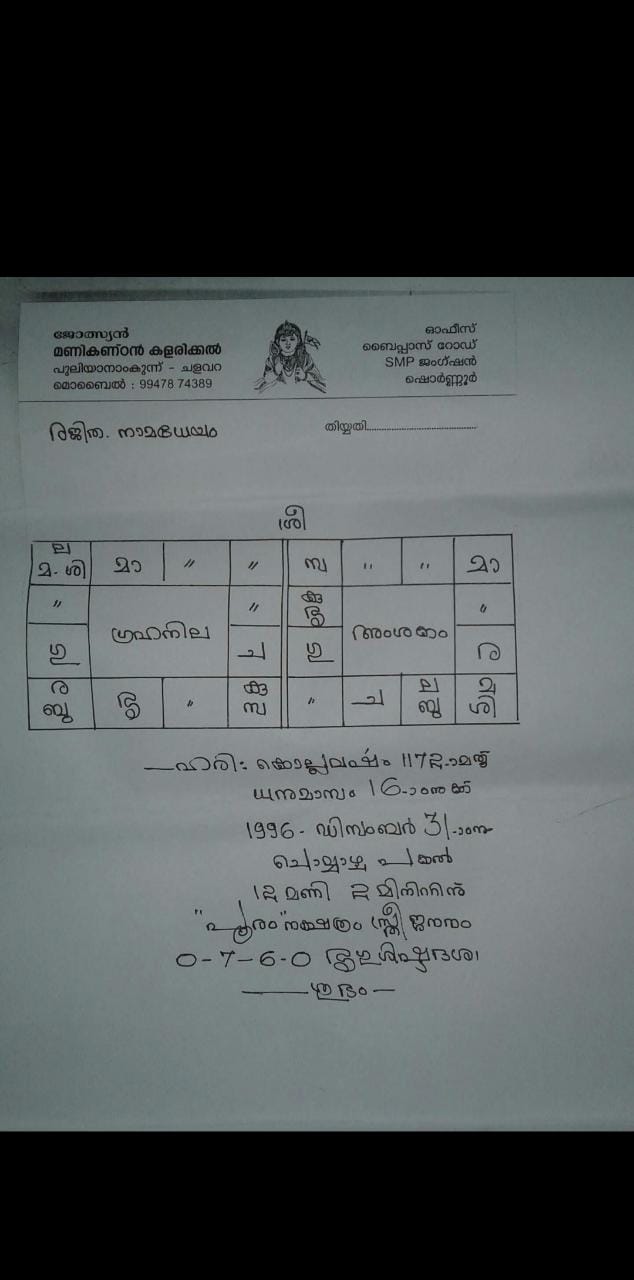 ജോത്സ്യൻ
മണികണ്ഠൻ കളരിക്കൽ
പുലിയാനാംകുന്ന് - ചളവറ
മൊബൈൽ : 99478 74389
ഓഫീസ്
ബൈപ്പാസ് റോഡ്
SMP ജംഗ്ഷൻ
ഷൊർണ്ണൂർ
രജിത. നാമധേയം
തിയ്യതി
ശ്രീ
ല
മ. ശി മാ " " സ " " മാ
" ഗ്രഹനില " കു അംശകം "
ഗു ച ഗു ര
ര കു ല മ
ബു ശു " സ " ച ബു ശി
ഹരി: കൊല്ലവർഷം 1172-ാമത്
ധനുമാസം 16-ാംനുക്ക്
1996- ഡിസംബർ 31-ാംനു
ചൊവ്വാഴ്ച പകൽ
12 മണി 2 മിനിറ്റിന്
"പൂരം" നക്ഷത്രം സ്ത്രീ ജനനം
0-7-6-0 ശിഷ്ടദശാ
ശുഭം